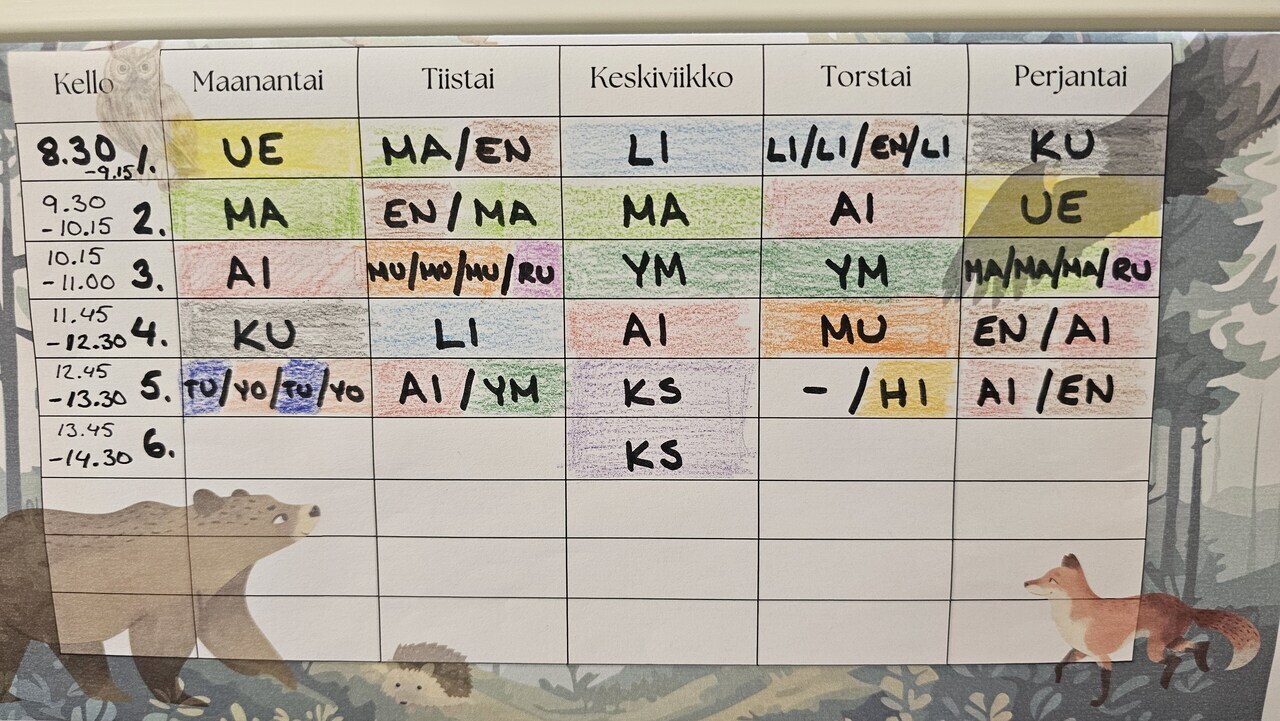 Kello Maanantai Tiistai Keskiviikko Torstai Perjantai
8.30 -9.15 1. UE MA/EN LI LI/LI/EN/LI KU
9.30 -10.15 2. MA EN / MA MA AI UE
10.15 -11.00 3. AI MU/MU/MU/RU YM YM MA/MA/MA/RU
11.45 -12.30 4. KU LI AI MU EN / AI
12.45 -13.30 5. TU/YO/TU/YO AI / YM KS - / HI AI / EN
13.45 -14.30 6. KS